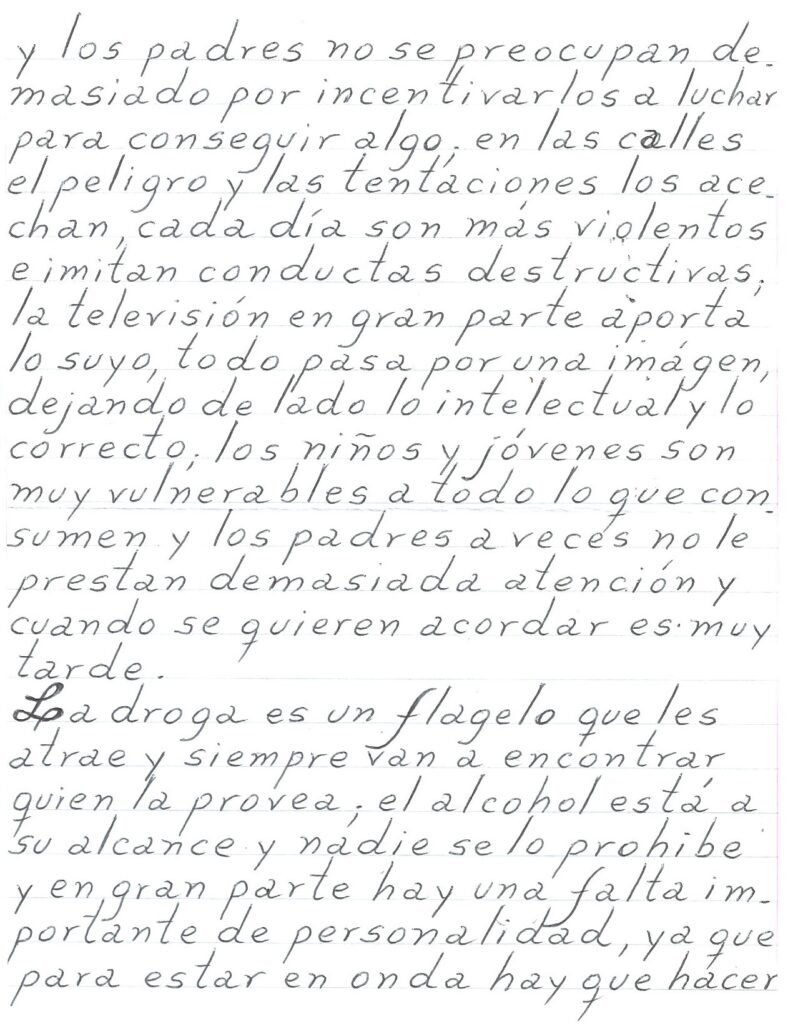 y los padres no se preocupan de-
masiado por incentivarlos a luchar
para conseguir algo; en las calles
el peligro y las tentaciones los ace-
chan, cada día son más violentos
e imitan conductas destructivas;
la televisión en gran parte aporta
lo suyo, todo pasa por una imágen,
dejando de lado lo intelectual y lo
correcto; los niños y jóvenes son
muy vulnerables a todo lo que con-
sumen y los padres a veces no le
prestan demasiada atención y
cuando se quieren acordar es muy
tarde.
La droga es un flagelo que les
atrae y siempre van a encontrar
quien la provea; el alcohol está a
su alcance y nadie se lo prohibe
y en gran parte hay una falta im-
portante de personalidad, ya que
para estar en onda hay que hacer